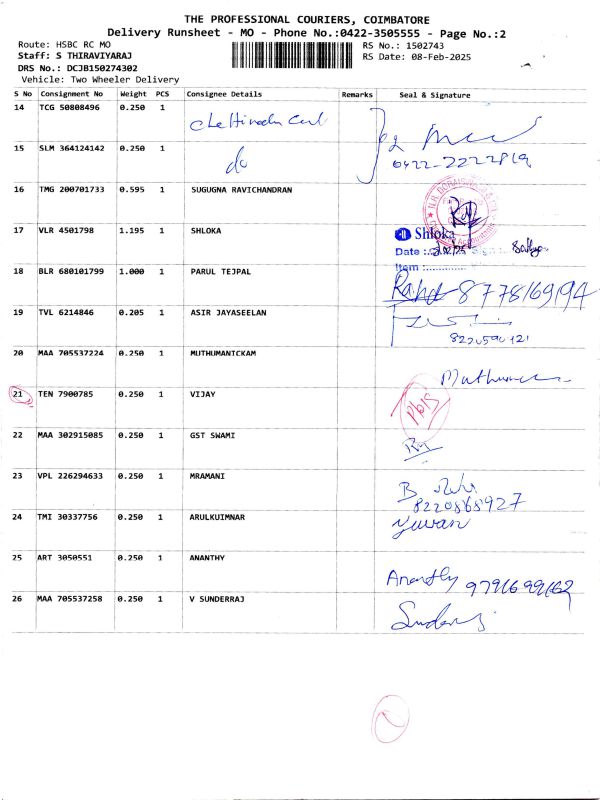 THE PROFESSIONAL COURIERS, COIMBATORE
Delivery Runsheet - MO - Phone No.:0422-3505555 - Page No.:2
Route: HSBC RC MO RS No.: 1502743
Staff: S THIRAVIYARAJ RS Date: 08-Feb-2025
DRS No.: DCJB150274302
Vehicle: Two Wheeler Delivery
S No Consignment No Weight PCS Consignee Details Remarks Seal & Signature
14 TCG 50808496 0.250 1
15 SLM 364124142 0.250 1 do
0422-2222819
16 TMG 200701733 0.595 1 SUGUGNA RAVICHANDRAN
17 VLR 4501798 1.195 1 SHLOKA Shloka
Date :
18 BLR 680101799 1.000 1 PARUL TEJPAL Item :.............
8778169194
19 TVL 6214846 0.205 1 ASIR JAYASEELAN
8220590121
20 MAA 705537224 0.250 1 MUTHUMANICKAM
21 TEN 7900785 0.250 1 VIJAY
22 MAA 302915085 0.250 1 GST SWAMI
23 VPL 226294633 0.250 1 MRAMANI
8220868927
24 TMI 30337756 0.250 1 ARULKUIMNAR Yuvan
25 ART 3050551 0.250 1 ANANTHY Ananthy 9791699162
26 MAA 705537258 0.250 1 V SUNDERRAJ